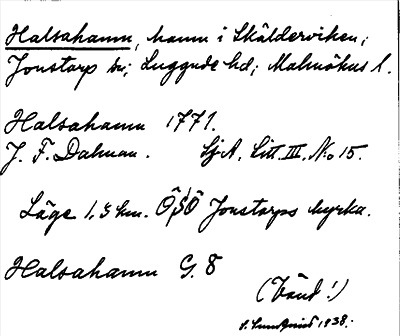 Halsahamn, hamn i Skälderviken,
Jonstorp sn; Luggude hd; Malmöhus l.
Halsahamn 1771.
J. F. Dahman. SjA. Litt. III. No 15.
Läge 1,5 km. ÖSÖ Jonstorps kyrka.
Halsahamn G. 8
(Vänd!)
1938.